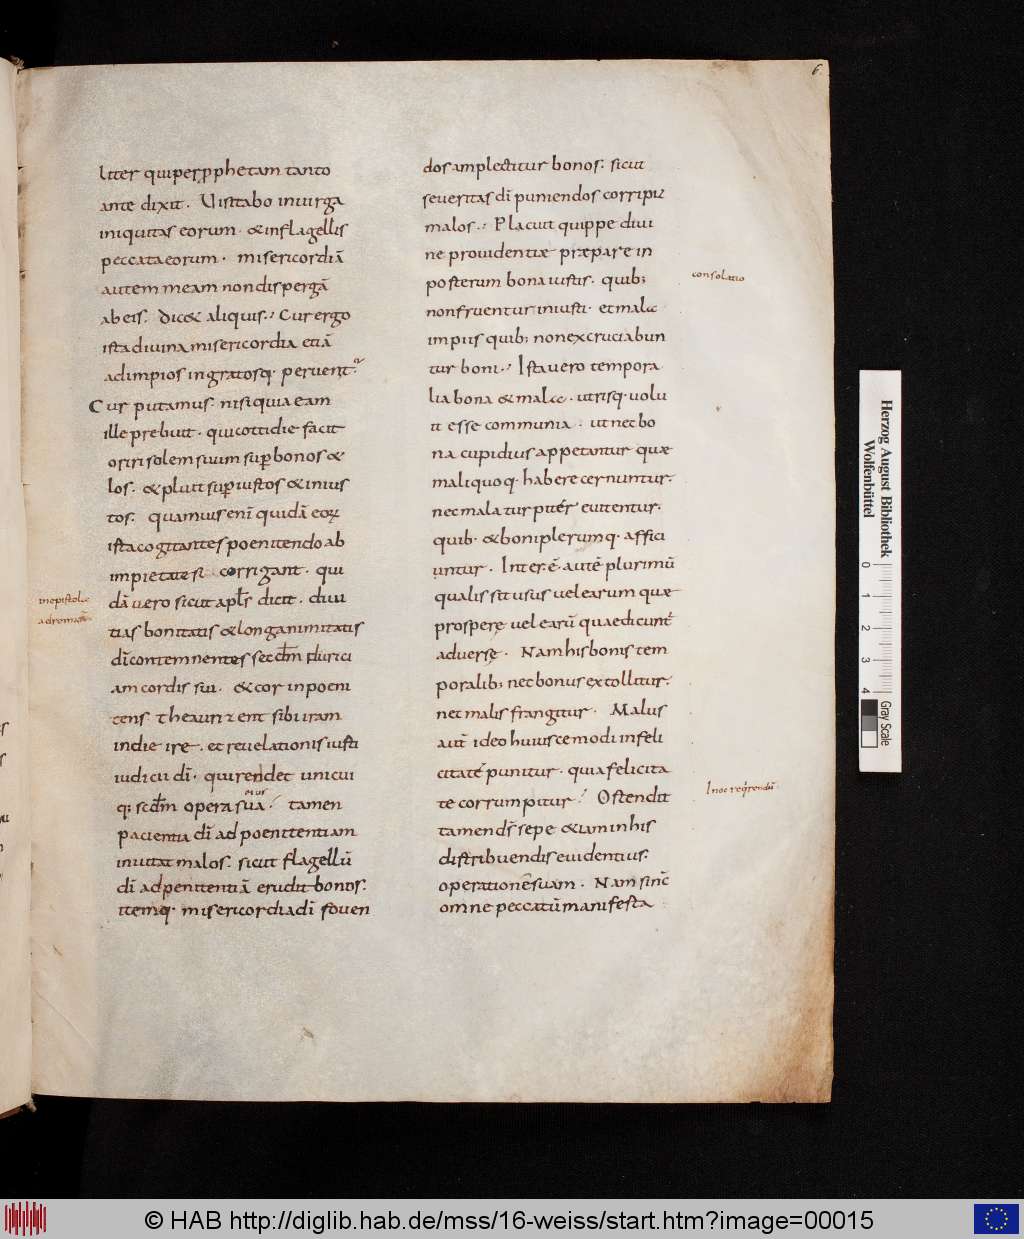 6
liter qui per p̱phetam tanto
ante dixit. Uisitabo in uirga
iniquitas eorum. & in flagellis
peccata eorum. misericordiā
autem meam non dispergā
ab eis. Dic& aliquis. Cur ergo
ista diuina misericordia etiā
ad impios ingratosq· peruenit
Cur putamus. nisi quia eam
ille prebuit. qui cottidie facit
oriri solem suum sup̱ bonos &
los. & pluit sup̱ iustos & inius
tos. quamuis enī quidā eoꝝ
ista cogitantes poenitendo ab
impietate corrigant. qui
dā uero sicut apl̄s dicit. diui
tias bonitatis & longanimitatis
dī contemnentes secdm̄ durici
am cordis sui. & cor inpoeni
tens. thesaurizent sibi iram
in die ire. et reuelationis iusti
iudicii dī. qui reddet unicui
q; scdm̄ opera sua eius tamen
pacientia dī ad poenitentiam
inuitat malos. sicut flagellū
dī ad penitentiā erudit bonos.
itemq· misericordia dī fouen
in epistola
ad romā
dos amplectitur bonos. sicut
seueritas dī puniendos corripit
malos. Placuit quippe diui
ne prouidentiæ præpare in
posterum bona iustis. quib;
non fruentur iniusti. et mala
impiis quib; non excruciabun
tur boni. Ista uero tempora
lia bona & mala. utrisq· uolu
it esse communia. ut nec bo
na cupidius appetantur quæ
mali quoq· habere cernuntur.
nec mala turpiter euitentur.
quib· & boni plerumq· affici
untur. Inter.ē. autē plurimū
qualis sit usus uel earum quæ
prospere uel earū quae dicunt
aduerse. Nam his bonis tem
poralib; nec bonus extollitur.
nec malis frangitur. Malus
aut̄ ideo huiuscemodi infeli
citate punitur. quia felicita
te corrumpitur. Ostendit
tamen dš sepe & iam in his
distribuendis euidentius.
operationē suam. Nam si nc̄
omne peccatū manifesta
consolatio
Herzog August Bibliothek
Wolfenbüttel
0 1 2 3 4
Gray Scale
© HAB http://diglib.hab.de/mss/16-weiss/start.htm?image=00015